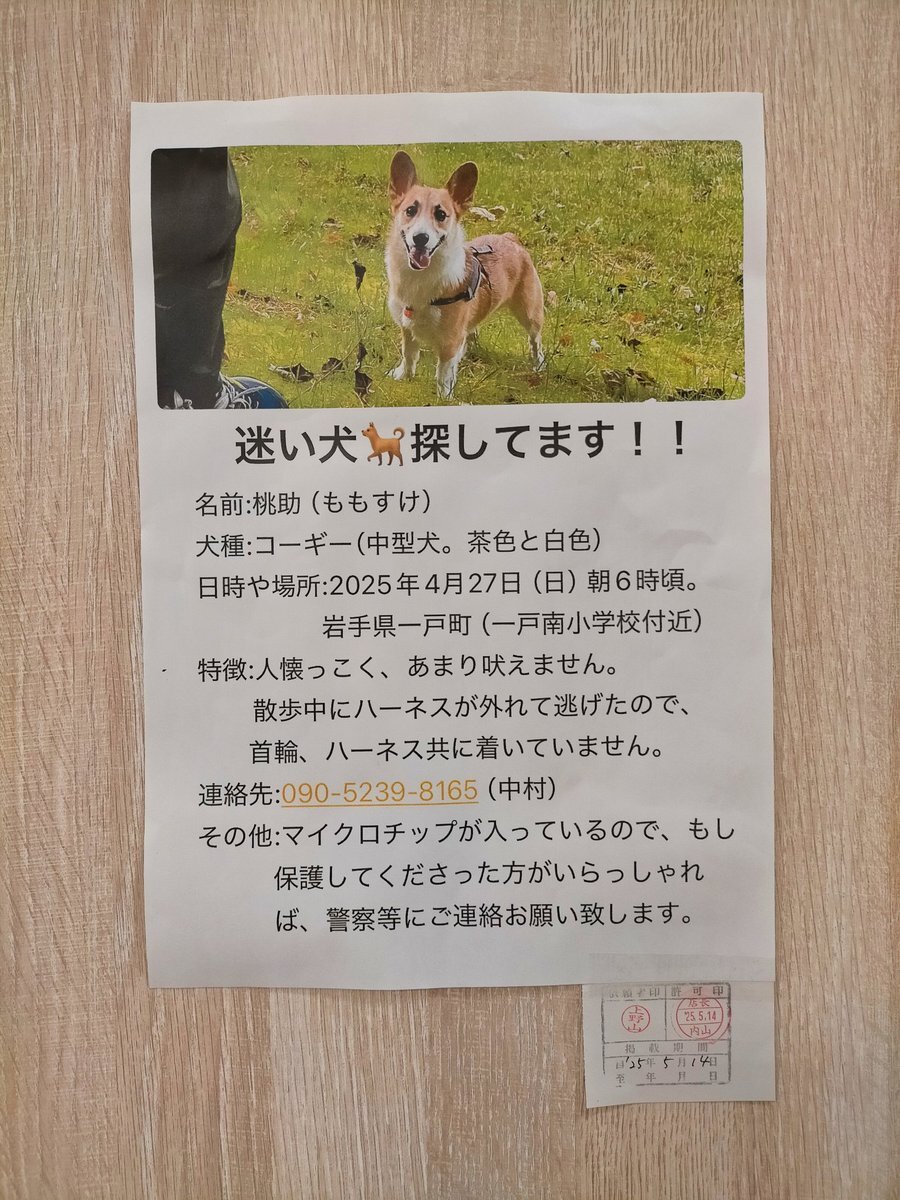 迷い犬🐕探してます！！
名前:桃助（ももすけ）
犬種:コーギー（中型犬。茶色と白色）
日時や場所:2025年4月27日（日）朝６時頃。
岩手県一戸町（一戸南小学校付近）
特徴:人懐っこく、あまり吠えません。
散歩中にハーネスが外れて逃げたので、
首輪、ハーネス共に着いていません。
連絡先:090-5239-8165（中村）
その他:マイクロチップが入っているので、もし
保護してくださった方がいらっしゃれ
ば、警察等にご連絡お願い致します。
依頼者印 許可印
上野山
店長
'25.5.14
内山
掲載期間
自'25年5月14日
至 年 月 日